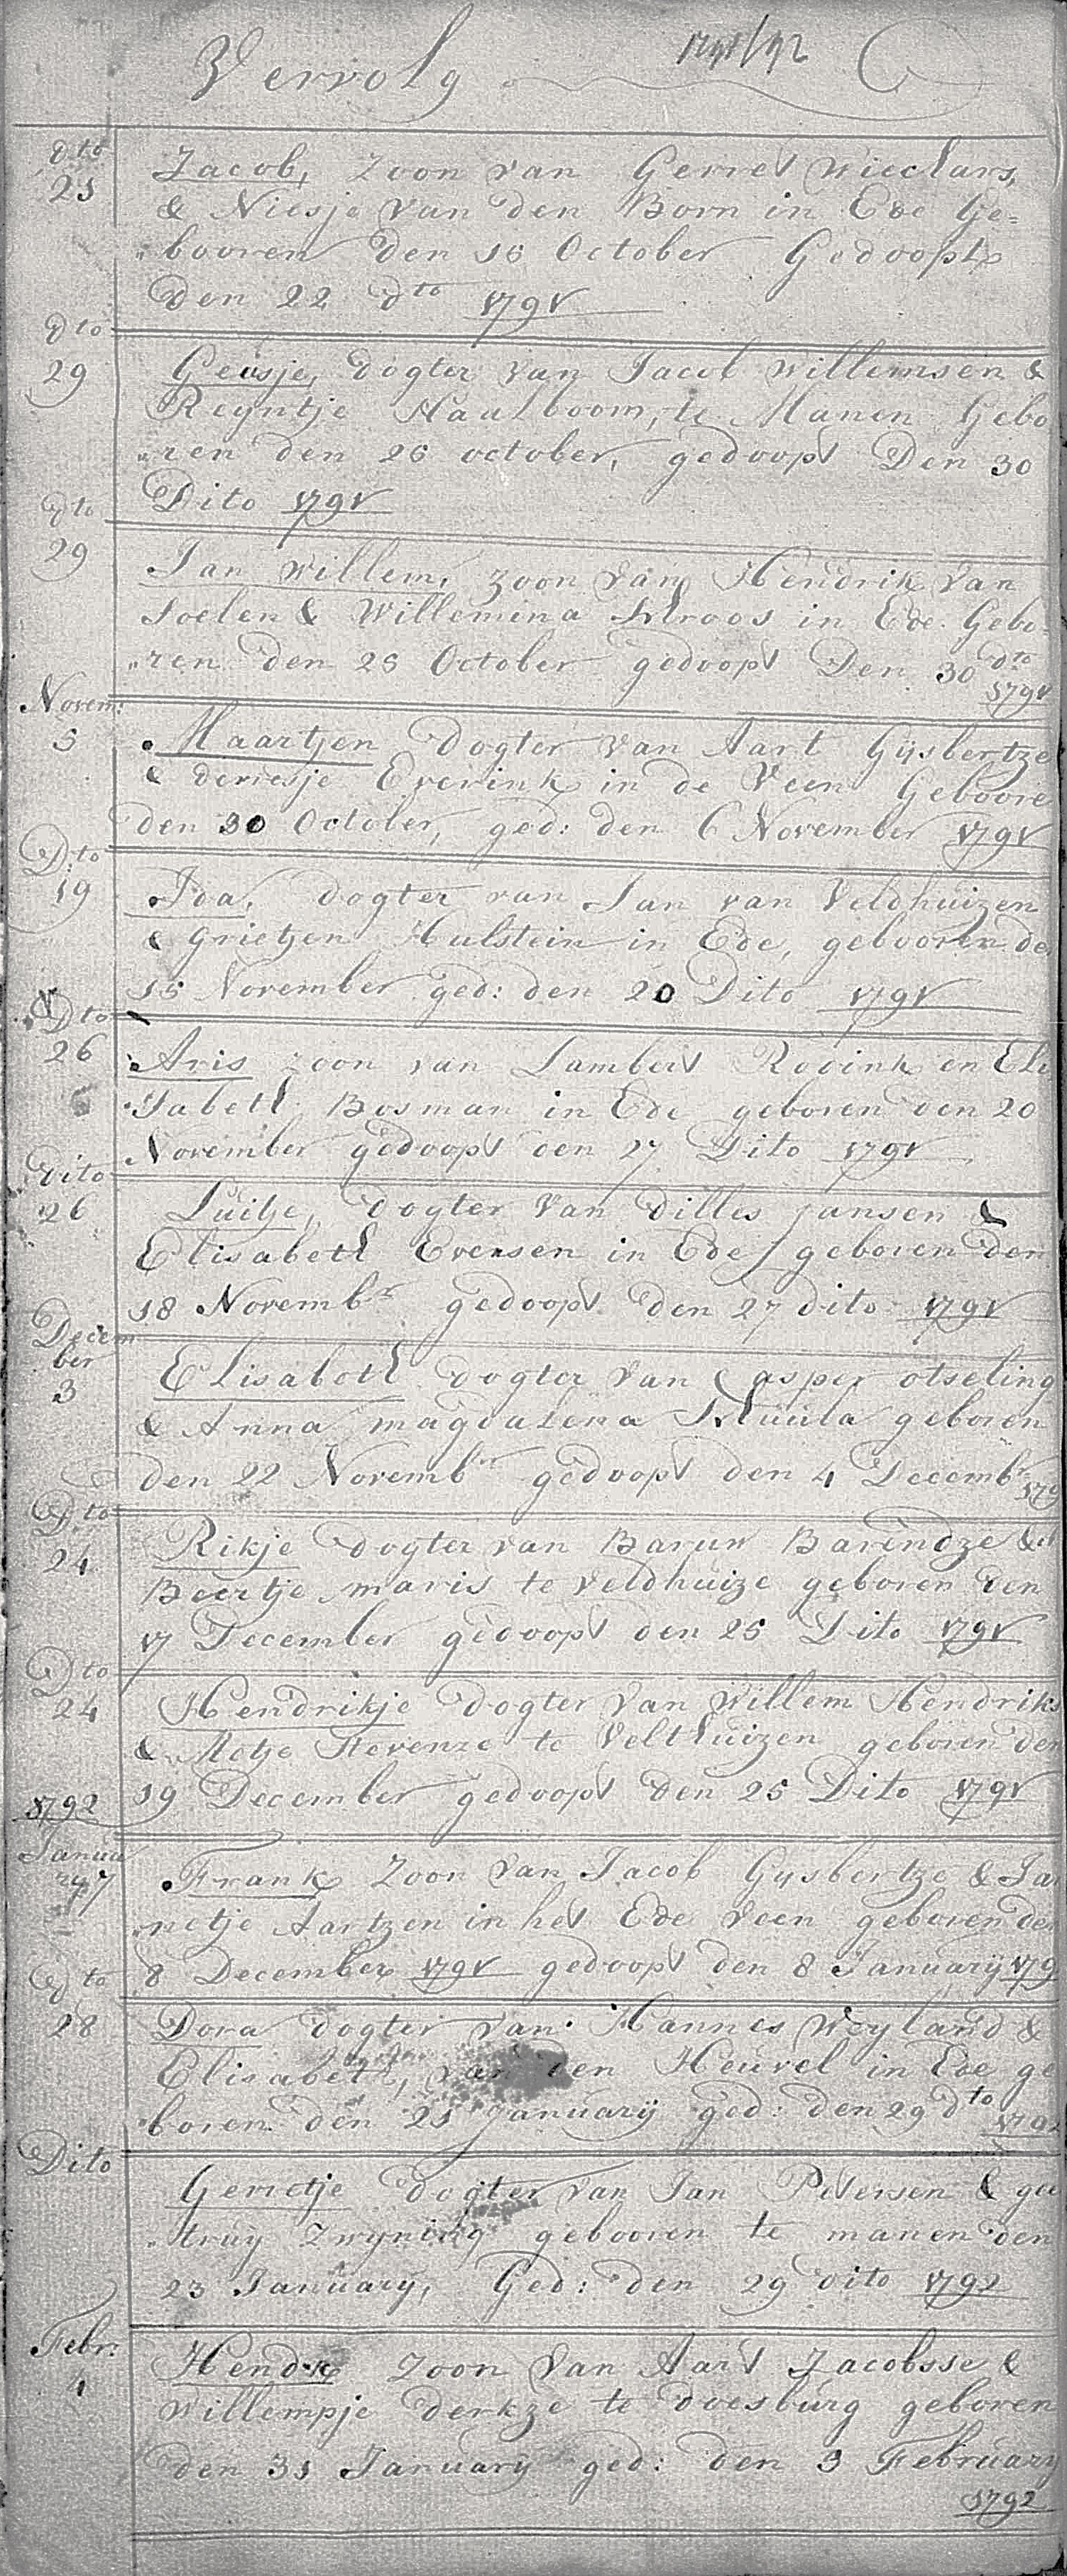 Vervolg 1791/92
dto
21
Jacob, Zoon van Gerret Wieclars,
& Niesje van den Born in Ede Ge=
„booren den 16 October Gedoopt
den 22 dto 1791
dto
29
Geusje, dogter van Jacob Willemsen &
Reyntje Haalboom, te Manen Gebo
„ren den 26 october, gedoopt Den 30
Dito 1791
dto
29
Jan Willem, zoon van Hendrik van
Soelen & Willemina Kroos in Ede Gebo-
„ren den 26 October gedoopt Den 30 dto
1791
Novem:
5
Maartjen Dogter van Aart Gijsbertze
& derresje Everink in de Veen Geboore
den 30 October, ged: den 6 November 1791
Dto
19
Ida, dogter van Jan van Veldhuizen
& Grietjen Hulstein in Ede, gebooren de
15 November ged: den 20 Dito 1791
Dto
26
Aris zoon van Lambert Rooink en Eli
sabeth Bosman in Ede geboren den 20
November gedoopt den 27 Dito 1791
Dito
26
Luitje, dogter Van Dilles Jansen &
Elisabeth Eversen in Ede geboren den
18 Novembr gedoopt den 27 dito 1791
Decem
ber
3
Elisabeth dogter van Casper otseling
& Anna magdalena geboren
den 22 Novembr gedoopt den 4 Decembr 179
Dto
24
Rikje dogter van Barun Barendze &
Beertje maris te veldhuize geboren den
17 December gedoopt den 25 Dito 1791
Dto
24
Hendrikje dogter van Willem Hendriks
& Metje Fevenze te Velthuizen geboren den
19 December gedoopt den 25 Dito 1791
1792
Janua
ry 7
Frank Zoon van Jacob Gysbertze & Jan
„netje Aartzen in het Ede Veen geboren den
8 December 1791 gedoopt den 8 January 179
dto
28
Dora dogter van Hannes Weyland &
Elisabeth, van den Heuvel in Ede ge
boren den 21 January ged: den 29 dto 1792
Dito
Gerretje dogter van Jan Petersen & gee
„truy Zwyning gebooren te manen den
23 January, Ged: den 29 dito 1792
Febr:
4
Hendrik Zoon van Aart Jacobsse &
Willempje derkze te doesburg geboren
den 31 January ged: den 3 February
1792